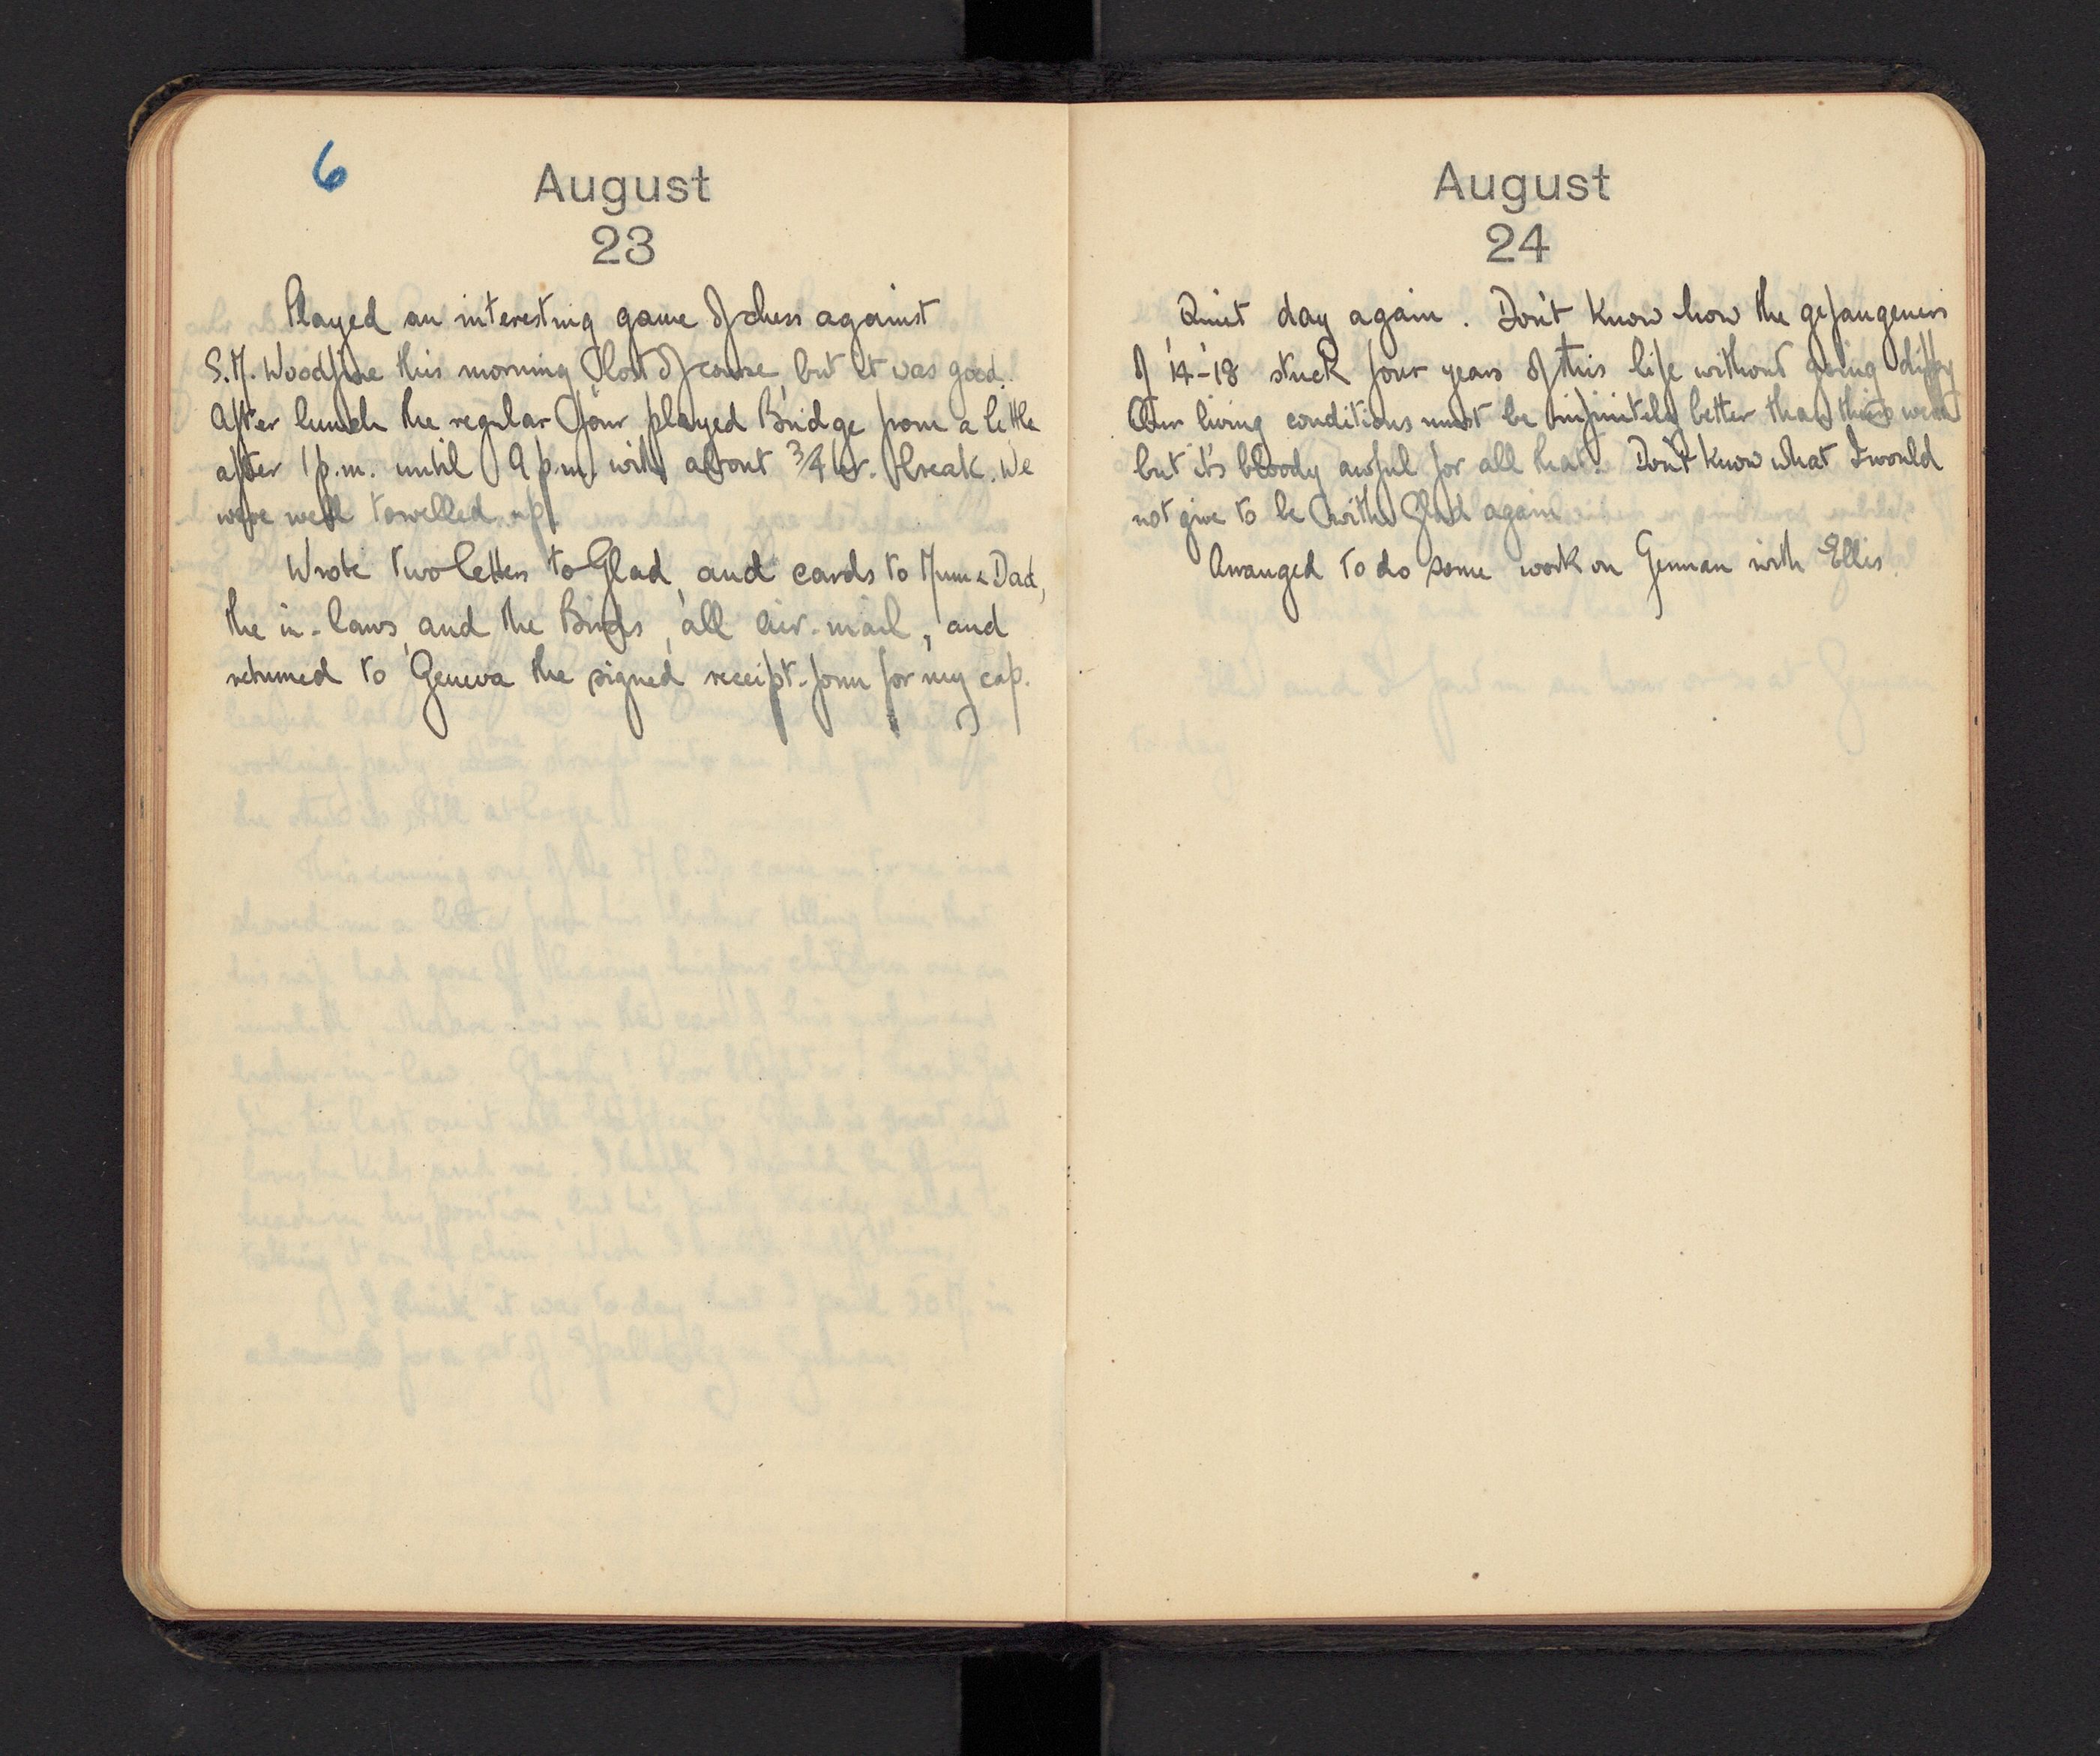 6
August
23
Played an interesting game of chess against
S.M. Woodfine this morning. Lost of course, but it was good.
After lunch the regular four played Bridge from a little
after 1 p.m. until 9 p.m. with about 3/4 hr. break. We
were well towelled up.
Wrote two letters to Glad, and cards to Mum & Dad,
the in-laws, and the Birds, all air-mail, and
returned to Geneva the signed receipt-form for my cap.
August
24
Quiet day again. Don't know how the gefangeners
of '14-'18 stuck four years of this life without going diffy
Our living conditions must be infinitely better than theirs were
but it's bloody awful for all that. Don't know what I would
not give to be with Glad again
Arranged to do some work on German with Ellis.